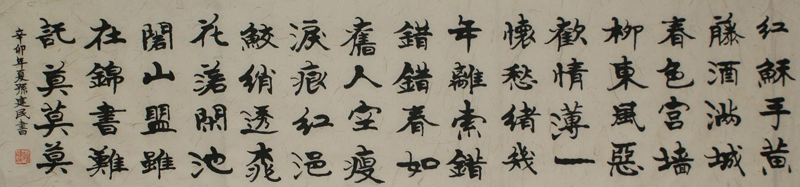 紅穌手黄
藤酒满城
春色宫墙
柳東風惡
歡情薄一
懷愁緒幾
年離索錯
錯錯春如
舊人空瘦
淚痕紅浥
鮫綃透桃
花落閑池
閣山盟雖
在錦書難
託莫莫莫
辛卯年夏孫建民書